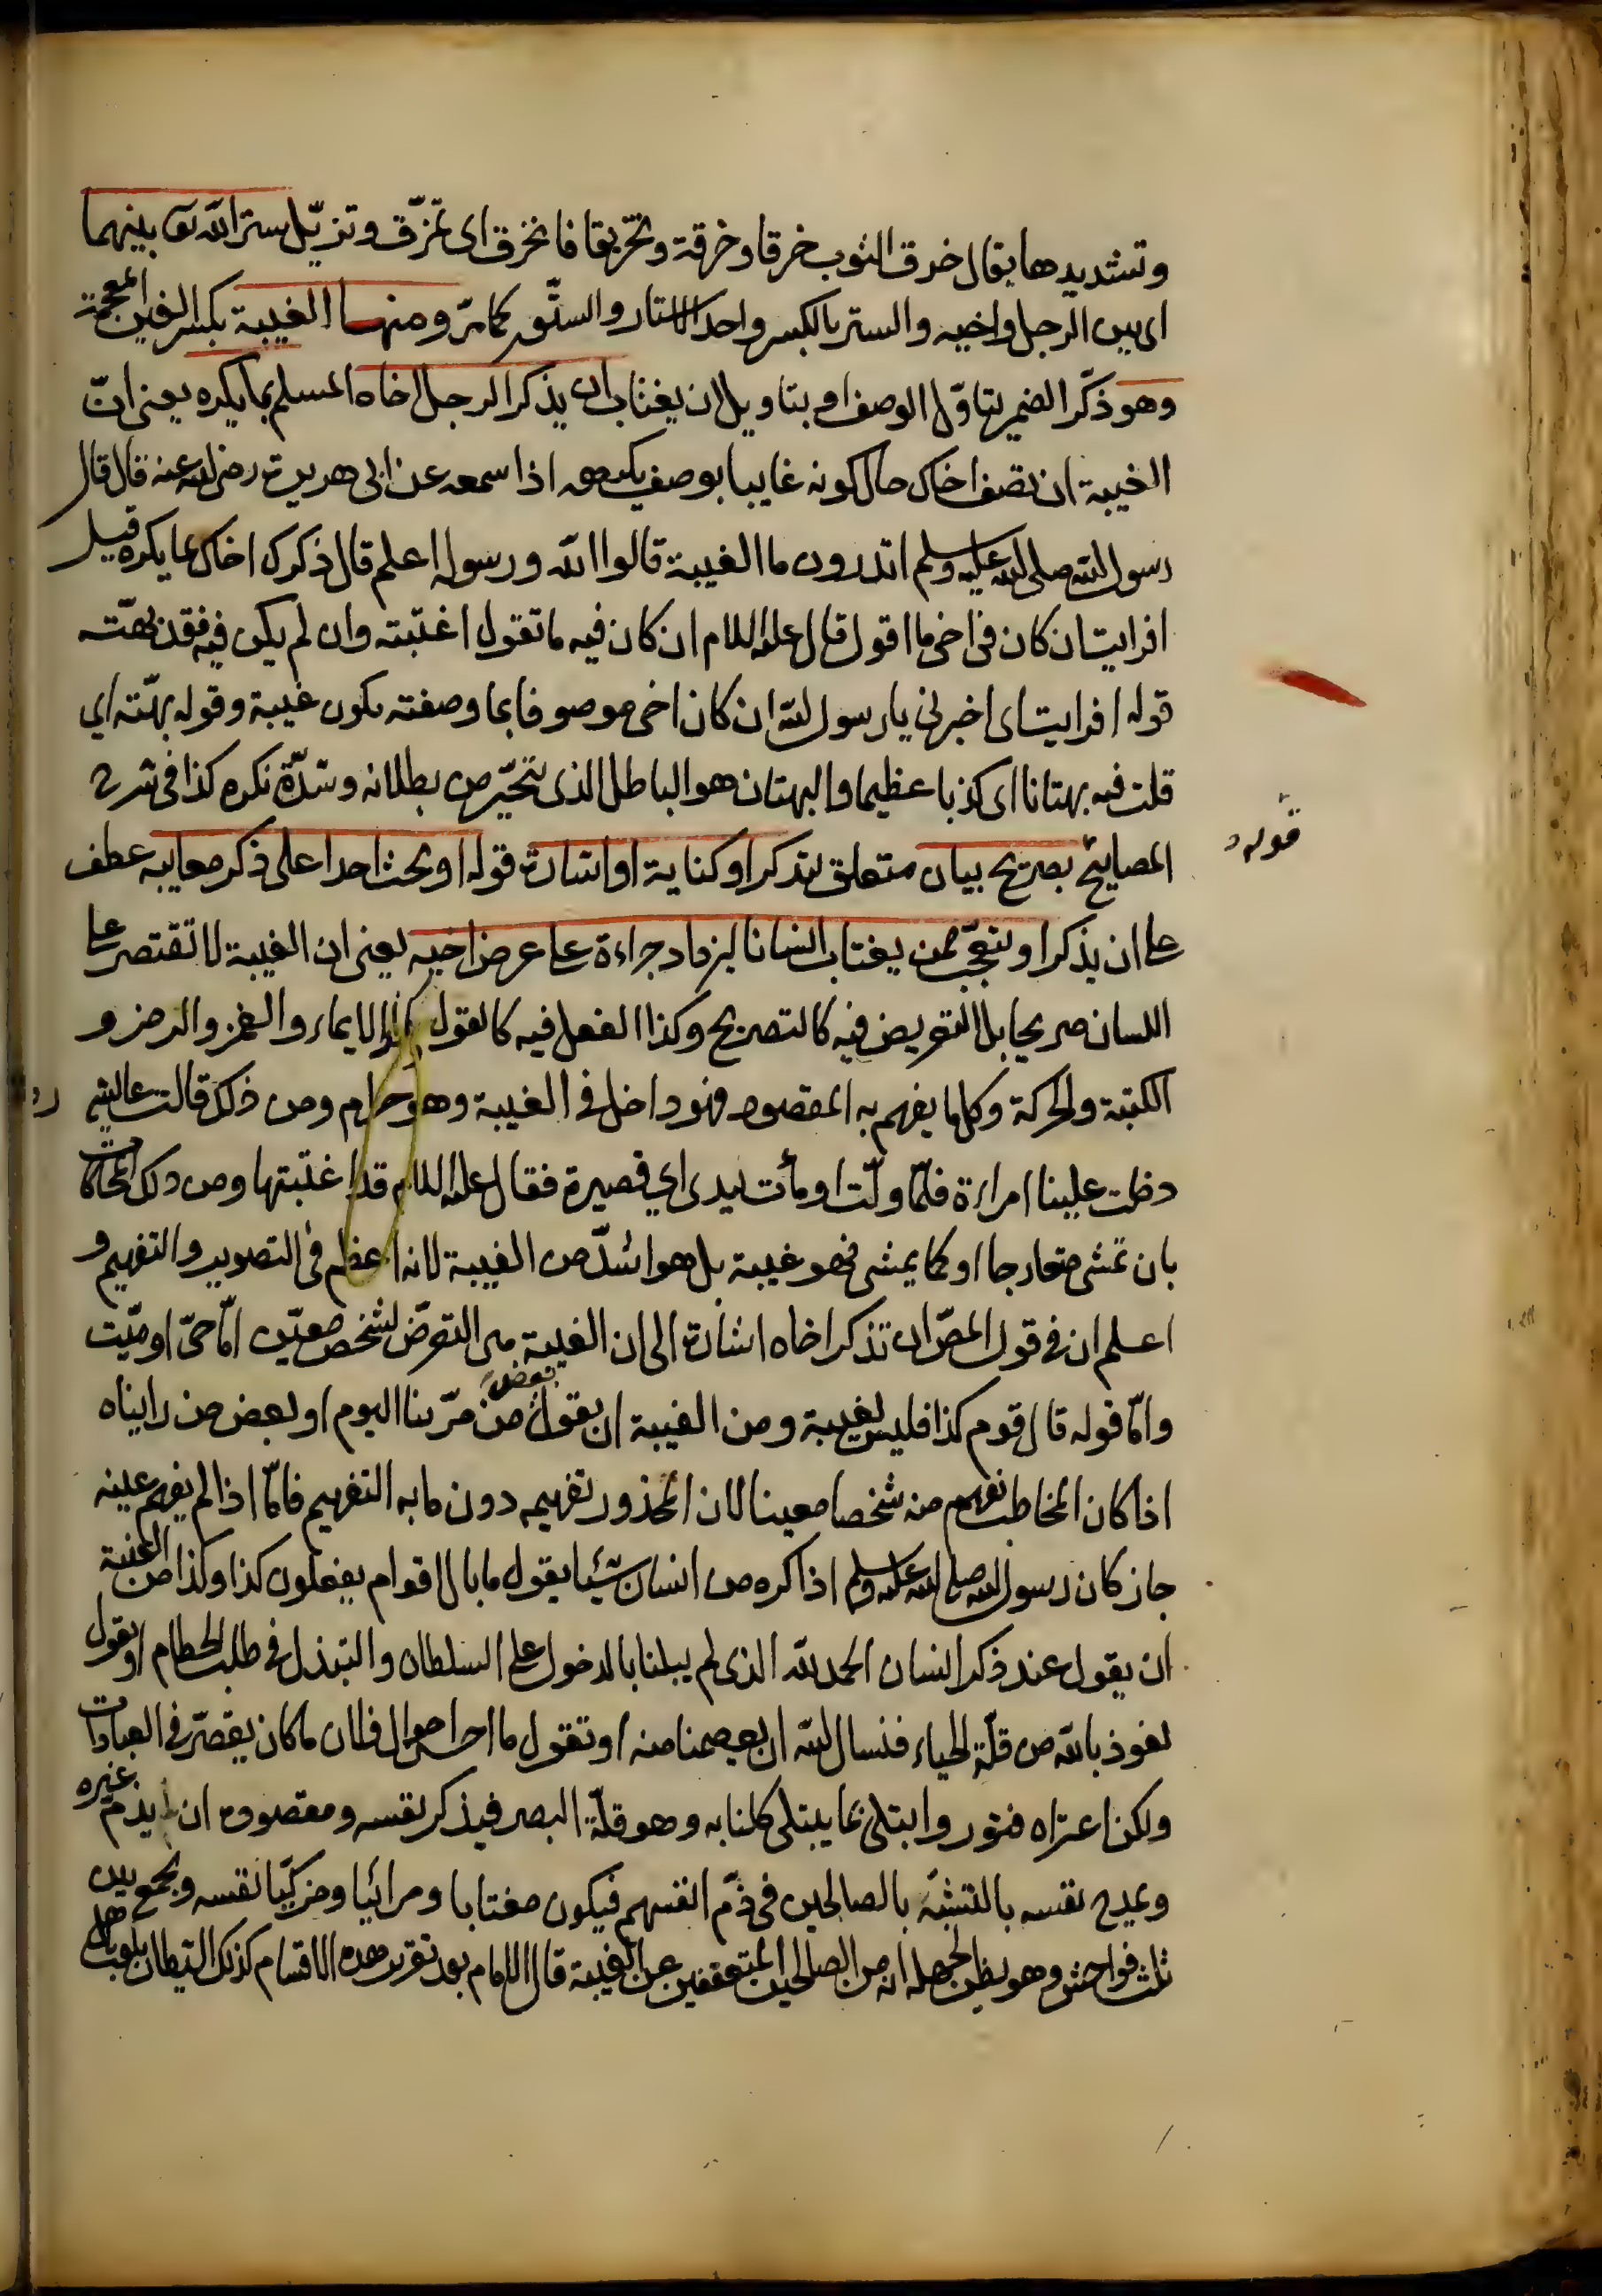 وتشديدها يقال خرق الثوب خرقا وخرقة وتخريقا فانخرق اى تمزّق وتزيّل ستر الله تعا بينهما
اى بين الرجل واخيه والستر بالكسر واحد الاستار والستّور كما مرّ ومنها الغيبة بكسر الغين المعجمة
وهو ذكّر الضمير بتاوّل الوصف او بتاويل ان يغتاب ان يذكر الرجل اخاه المسلم بما يكره يعنى انّ
الغيبة ان تصف اخاك حال كونه غايبا بوصف يكرهه اذا سمعه عن ابى هريرة رضى الله عنه قال قال
رسول الله صلى الله عليه وسلم اتدرون ما الغيبة قالوا الله ورسوله اعلم قال ذكرك اخاك بما يكره قيل
افرايت ان كان فى اخى ما اقول قال عليه السلام ان كان فيه ما تقول اغتبته وان لم يكن فيه فقد بهتّه
قوله افرايت اى اخبرنى يا رسول الله ان كان اخى موصوفا بما وصفته يكون غيبة وقوله بهتّه اى
قلت فيه بهتانا اى كذبا عظيما والبهتان هو الباطل الذى يتحيّر من بطلانه وشدّة نكره كذا فى شرح
المصابيح بصريح بيان متعلق بتذكر او كناية او اشارة قوله او بحث احدا على ذكر معايبه عطف
على ان يذكر او يتعجّب ممن يغتاب انسانا ليزداد جراءة على عرض اخيه يعنى ان الغيبة لا تقتصر على
اللسان صريحا بل التعريض فيه كالتصريح وكذا الفعل فيه كالقول والايماء والغمز والرمز و
الكتبة والحركة وكل ما يفهم به المقصود فهو داخل فى الغيبة وهو حرام ومن ذلك قالت عائشة
دخلت علينا امراءة فلمّا ولّت اومأت بيدى اى قصيرة فقال عليه السلام قد اغتبتها ومن ذلك المحاكات
بان تمشى متعارجا او كما يمشى فهو غيبة بل هو اشدّ من الغيبة لانه اعظم فى التصوير والتفهيم و
اعلم ان فى قول المصّ ان تذكر اخاه اشارة الى ان الغيبة هى التعرّض لشخص معيّن امّا حىّ او ميّت
وامّا قوله قال قوم كذا فليس بغيبة ومن الغيبة ان يقول بعض من مرّ بنا اليوم او بعض من رايناه
اذا كان المخاطب يفهم منه شخصا معينا لان المحذور تفهيمه دون ما به التفهيم فامّا اذا لم يفهم عينه
جاز كان رسول الله صلى الله عليه وسلم اذا كره من انسان شيئا يقول ما بال اقوام يفعلون كذا وكذا من الغيبة
ان يقول عند ذكر انسان الحمد لله الذى لم يبلنا بالدخول على السلطان والتبذل فى طلب الحطام او يقول
نعوذ بالله من قلّة الحياء فنسال الله ان يعصمنا منه او تقول ما احسن احوال فلان ما كان يقصّر فى العبادات
ولكن اعتراه فتور وابتلى بما يبتلى كلنا به وهو قلّة البصر فيذكر نفسه ومقصوده ان يذمّ غيره
ويمدح نفسه بالتشبّه بالصالحين فى ذمّ انفسهم فيكون مغتابا ومرائيا ومزكيّا نفسه ويجمع بين
ثلث فواحش وهو يظن لجهله انه من الصالحين المتعففين عن الغيبة قال الامام بعد تقرير هذه الاقسام كذلك الشيطان يلعب
قوله